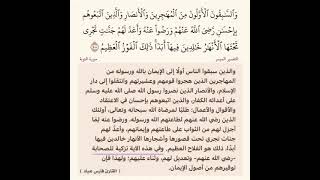 وَٱلسَّٰبِقُونَ ٱلْأَوَّلُونَ مِنَ ٱلْمُهَٰجِرِينَ وَٱلْأَنصَارِ وَٱلَّذِينَ ٱتَّبَعُوهُم
بِإِحْسَٰنٍ رَّضِىَ ٱللَّهُ عَنْهُمْ وَرَضُوا۟ عَنْهُ وَأَعَدَّ لَهُمْ جَنَّٰتٍ تَجْرِى
تَحْتَهَا ٱلْأَنْهَٰرُ خَٰلِدِينَ فِيهَآ أَبَدًا ذَٰلِكَ ٱلْفَوْزُ ٱلْعَظِيمُ
التفسير الميسر
سورة التوبة
والذين سبقوا الناس أولا إلى الإيمان بالله ورسوله من
المهاجرين الذين هجروا قومهم وعشيرتهم وانتقلوا إلى دار
الإسلام، والأنصار الذين نصروا رسول الله صلى الله عليه وسلم
على أعدائه الكفار، والذين اتبعوهم بإحسان في الاعتقاد
والأقوال والأعمال؛ طلبًا لمرضاة الله سبحانه وتعالى، أولئك
الذين رضي الله عنهم لطاعتهم الله ورسوله، ورضوا عنه لما
أجزل لهم من الثواب على طاعتهم وإيمانهم، وأعد لهم
جنات تجري تحت قصورها وأشجارها الأنهار خالدين فيها
أبدًا، ذلك هو الفلاح العظيم. وفي هذه الآية تزكية للصحابة
-رضي الله عنهم- وتعديل لهم، وثناء عليهم؛ ولهذا فإن
توقيرهم من أصول الإيمان.
القارئ فارس عباد